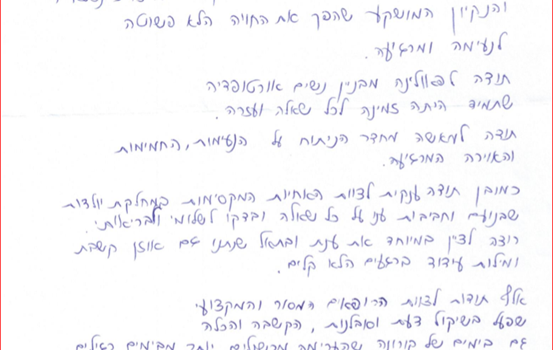 והנקיון המושקע שהפך את החויה הלא פשוטה
לנעימה ומרגיעה.
תודה לפאולינה מבניין נשים אורטופדיה
שתמיד היתה זמינה לכל שאלה ועזרה.
תודה למאשה מחדר הניתוח על הנעימות, החמימות
והאוירה המרגיעה.
כמובן תודה ענקית לצוות האחיות המקסימות במחלקת יולדות
שבנועם וחביבות ענו על כל שאלה ובדקו לשלומי ולבריאותי.
רוצה לציין במיוחד את ענת ובתאל שנתנו גם אוזן קשבת
ומילות עידוד ברגעים הלא קלים.
אלף תודות לצוות הרופאים המסור והמקצועי
שפעל בשיקול דעת וסובלנות, הקשבה והכלה
גם בימים של קורונה שהעמיסה יותר מבימים רגילים